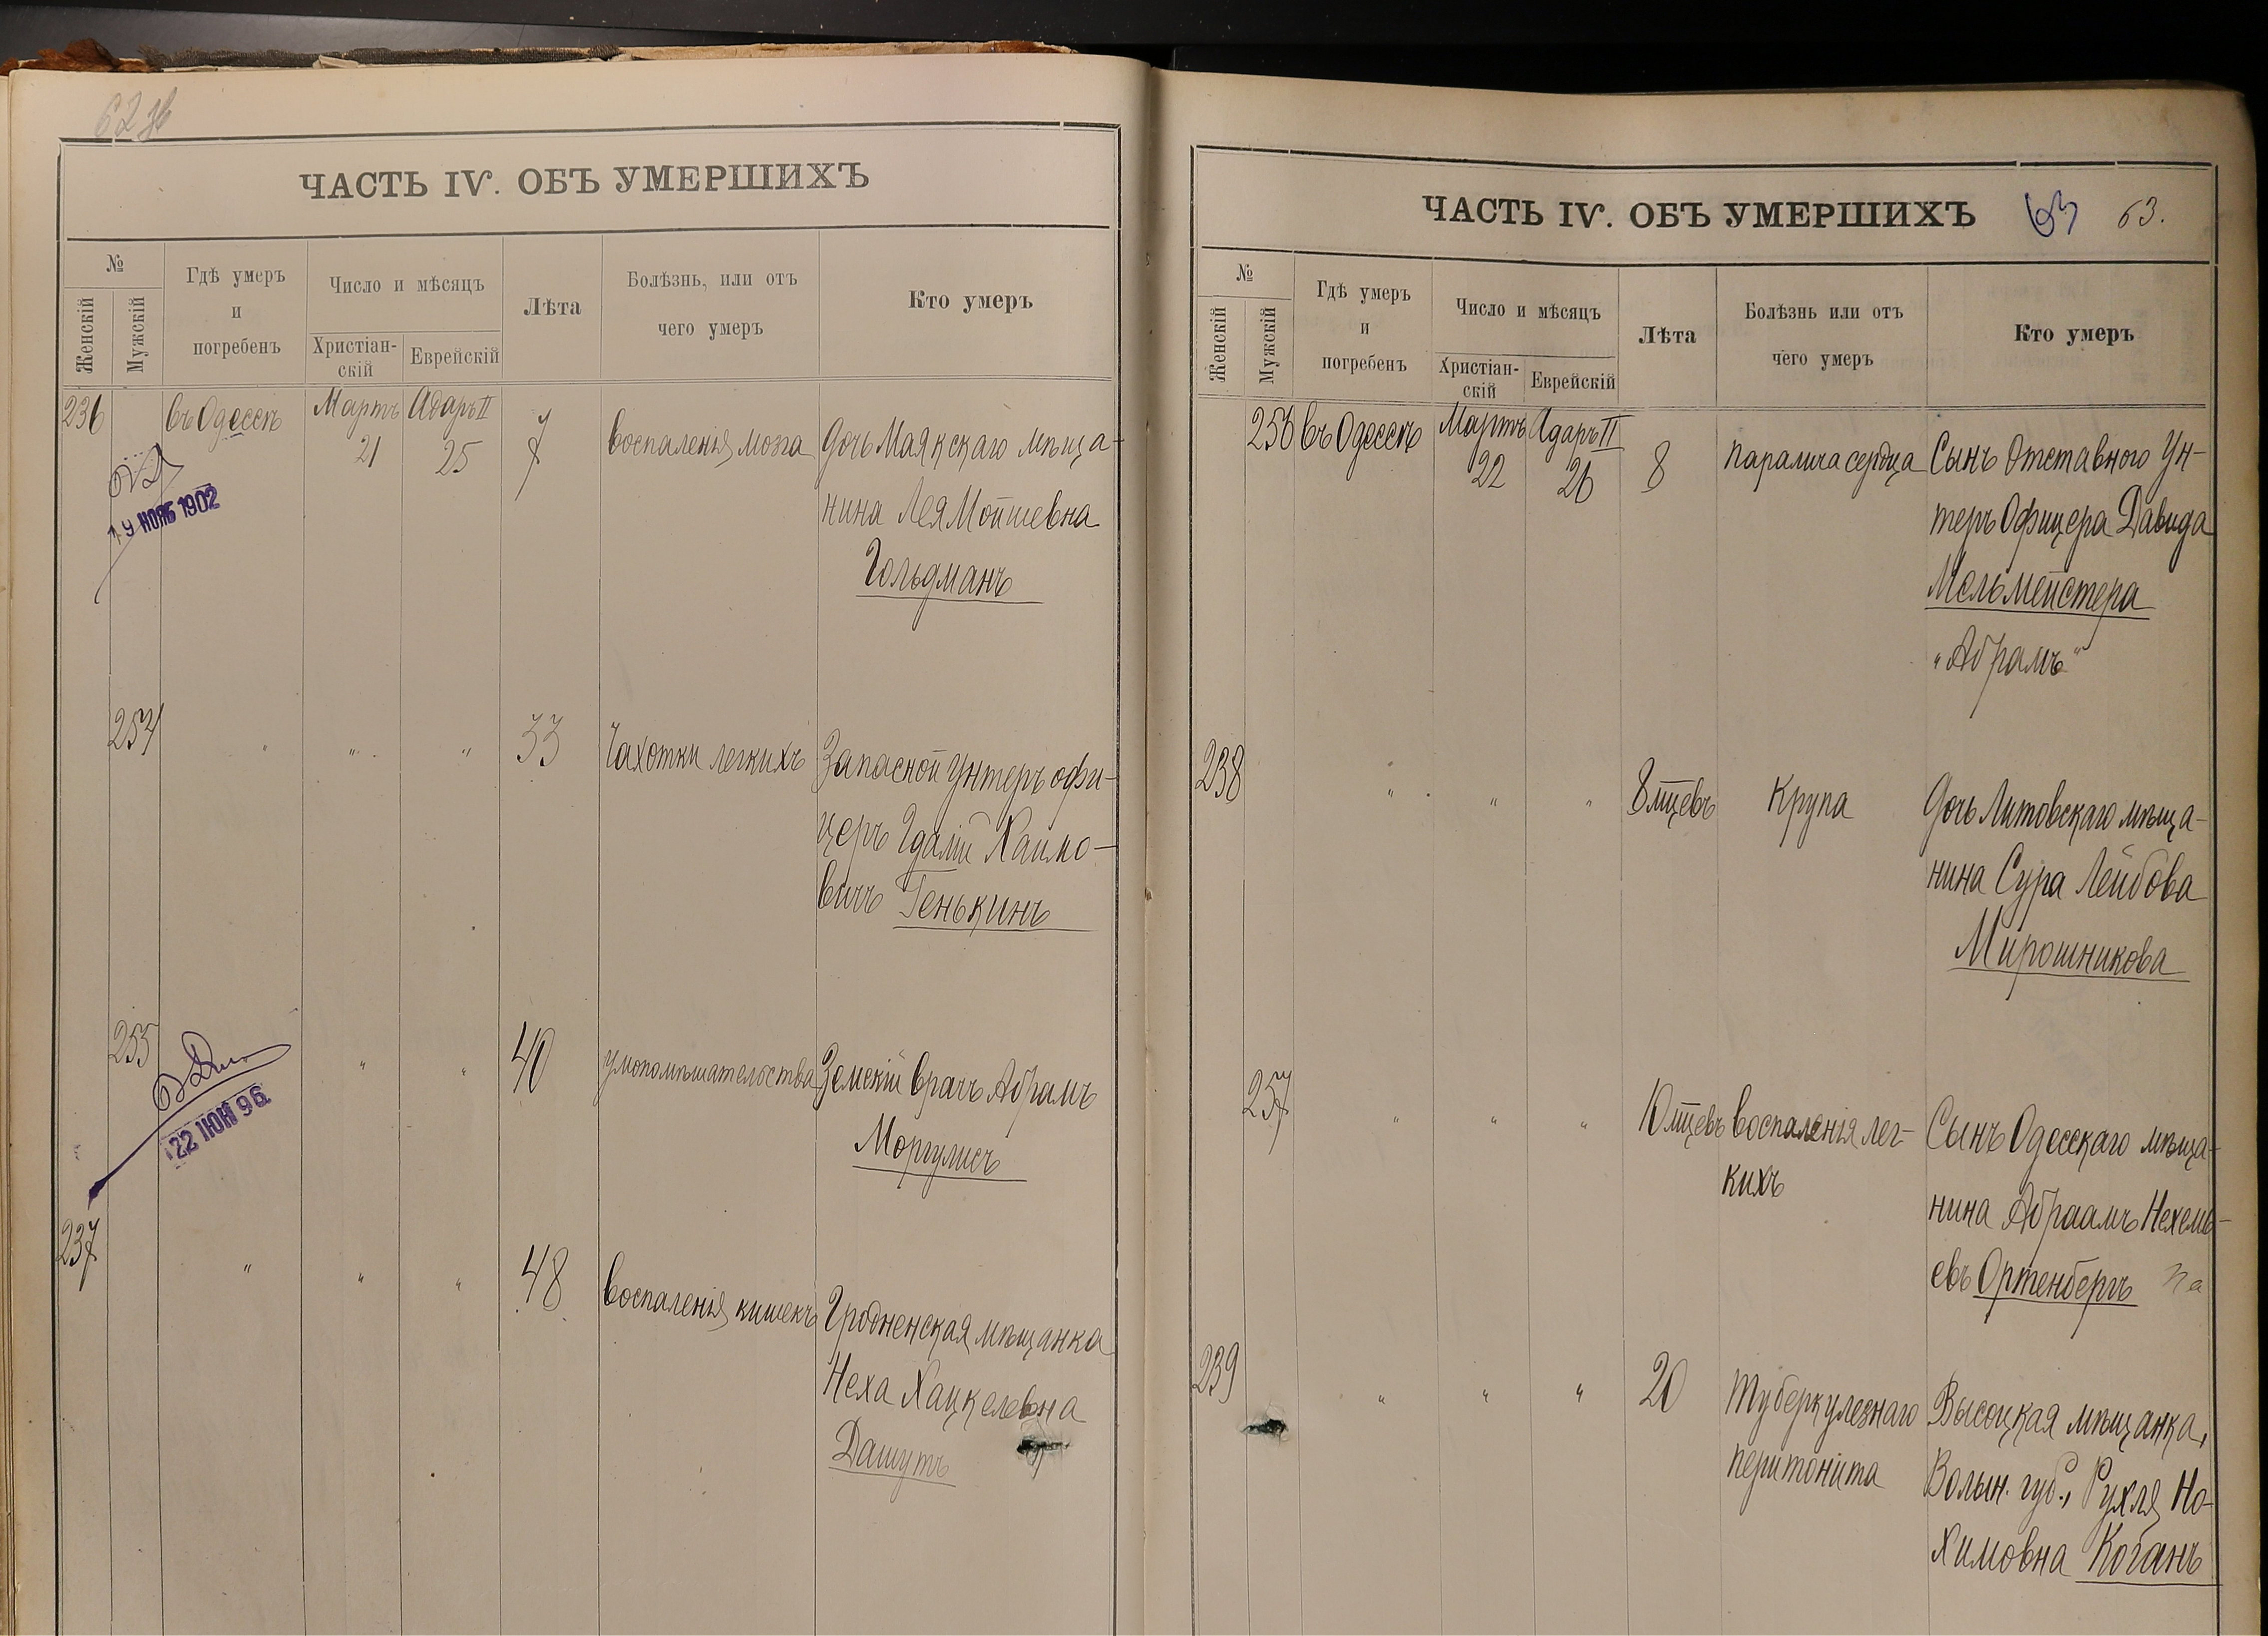 62 зв
ЧАСТЬ IV. ОБЪ УМЕРШИХЪ
№
Женскій
Мужскій
Гдѣ умеръ
и
погребенъ
Число и мѣсяцъ
Христіан-
скій
Еврейскій
Лѣта
Болѣзнь, или отъ
чего умеръ
Кто умеръ
236 въ Одессѣ Мартъ 21 Адаръ II 25 7 воспаленія мозга Дочь Маякскаго мѣща-
нина Лея Мойшевна
Гольдманъ
19 НОЯБ 1902
254 " " " 33 Чахотки легкихъ Запасной унтеръ офи-
церъ Гдалій Хаимо-
вичъ Генькинъ
255 " " 40 умопомѣшательства Земскій врачъ Абрамъ
Моргулисъ
22 ІЮН 96
237 " " " 48 воспаленія кишекъ Гродненская мѣщанка
Неха Хацкелевна
Дашутъ
ЧАСТЬ IV. ОБЪ УМЕРШИХЪ 63 63.
№
Женскій
Мужскій
Гдѣ умеръ
и
погребенъ
Число и мѣсяцъ
Христіан-
скій
Еврейскій
Лѣта
Болѣзнь или отъ
чего умеръ
Кто умеръ
256 въ Одессѣ Мартъ 22 Адаръ II 26 8 паралича сердца Сынъ Отставного Ун-
теръ Офицера Давида
Мельмейстера
"Абрамъ"
238 " " " 8 мцевъ Крупа Дочь Литовскаго мѣща-
нина Сура Лейбова
Мирошникова
257 " " " 10 мцевъ воспаленія лег-
кихъ
Сынъ Одесскаго мѣща-
нина Абраамъ Нехемь-
евъ Ортенбергъ
239 " " " 20 Туберкулезнаго
перитонита
Высоцкая мѣщанка,
Волын. губ., Рухля Но-
химовна Коганъ